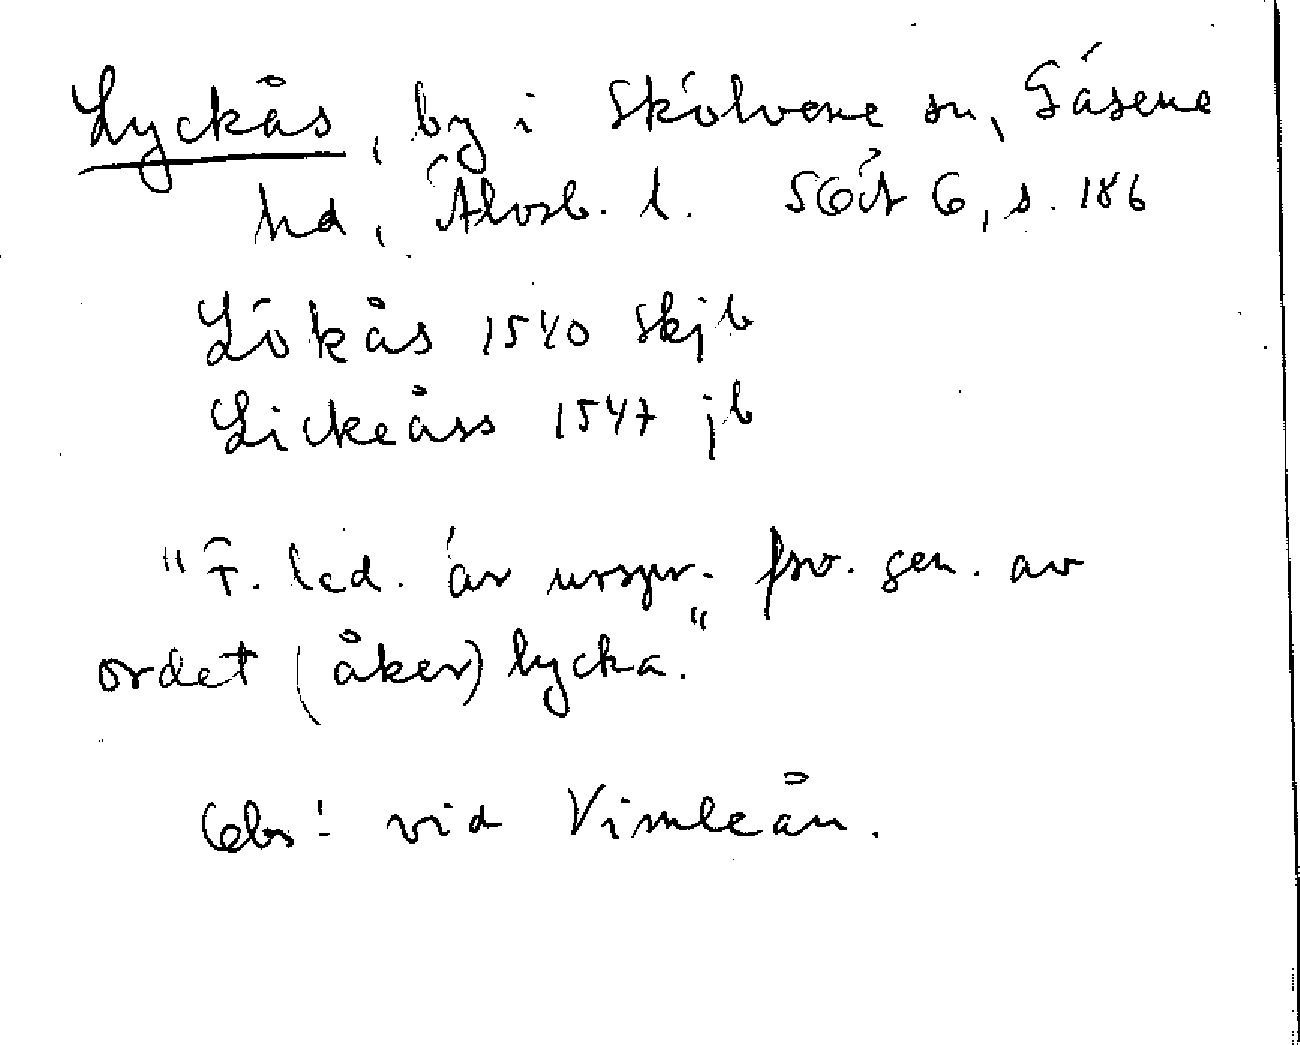 Lyckås, by i Skölvene sn, Gäsene
hd, Älvsb. l. SOÄ 6, s. 186
Lökås 1540 skjb
Lickeåss 1547 jb
"F. led. är urspr. fsv. gen. av
ordet (åker)lycka."
Obs! vid Vimleån.